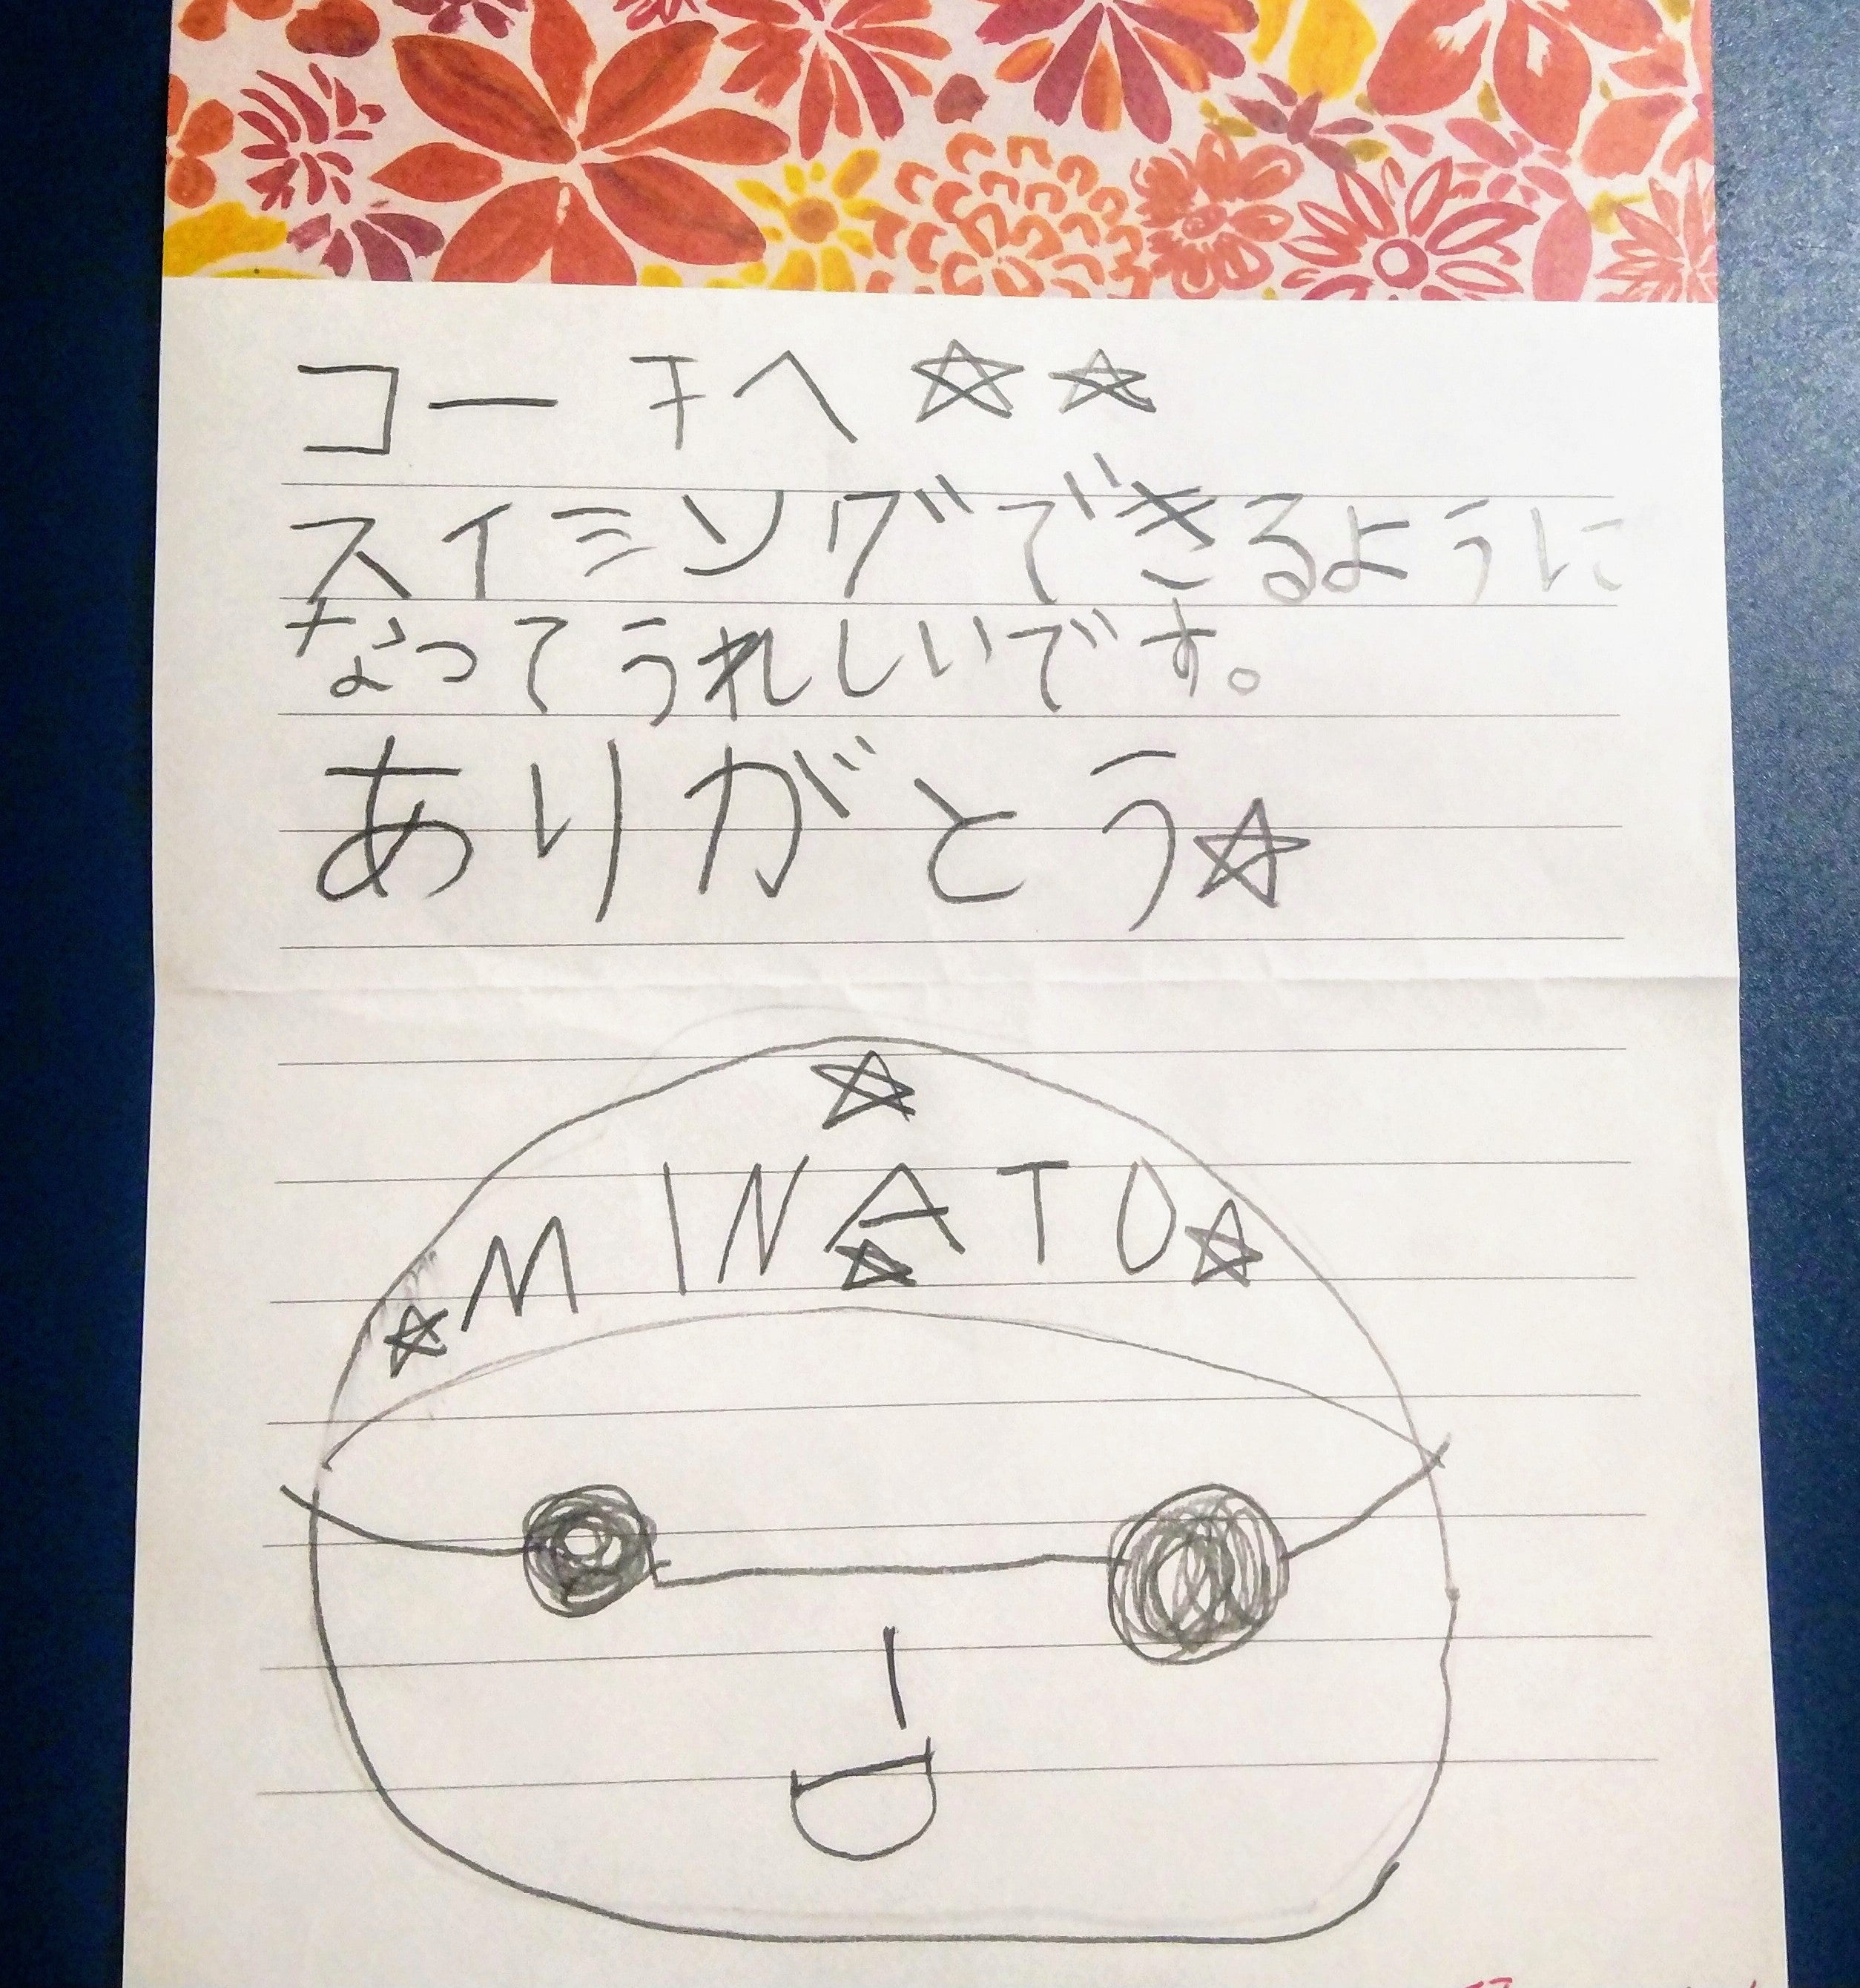 コーチへ☆☆
スイミングできるように
なってうれしいです。
ありがとう☆
MINATO